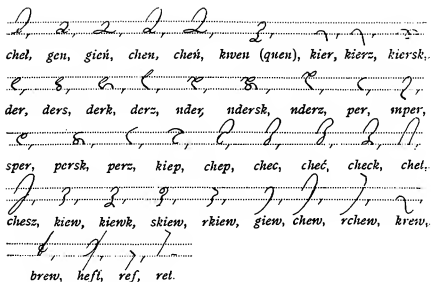 cheł, gen, gień, chen, cheń, kwen (quen), kier, kierz, kiersk,
der, ders, derk, derz, nder, ndersk, nderz, per, mper,
sper, persk, perz, kiep, chep, chec, cheć, check, chet,
chesz, kiew, kiewk, skiew, rkiew, giew, chew, rchew, krew,
brew, heft, ref, ret.